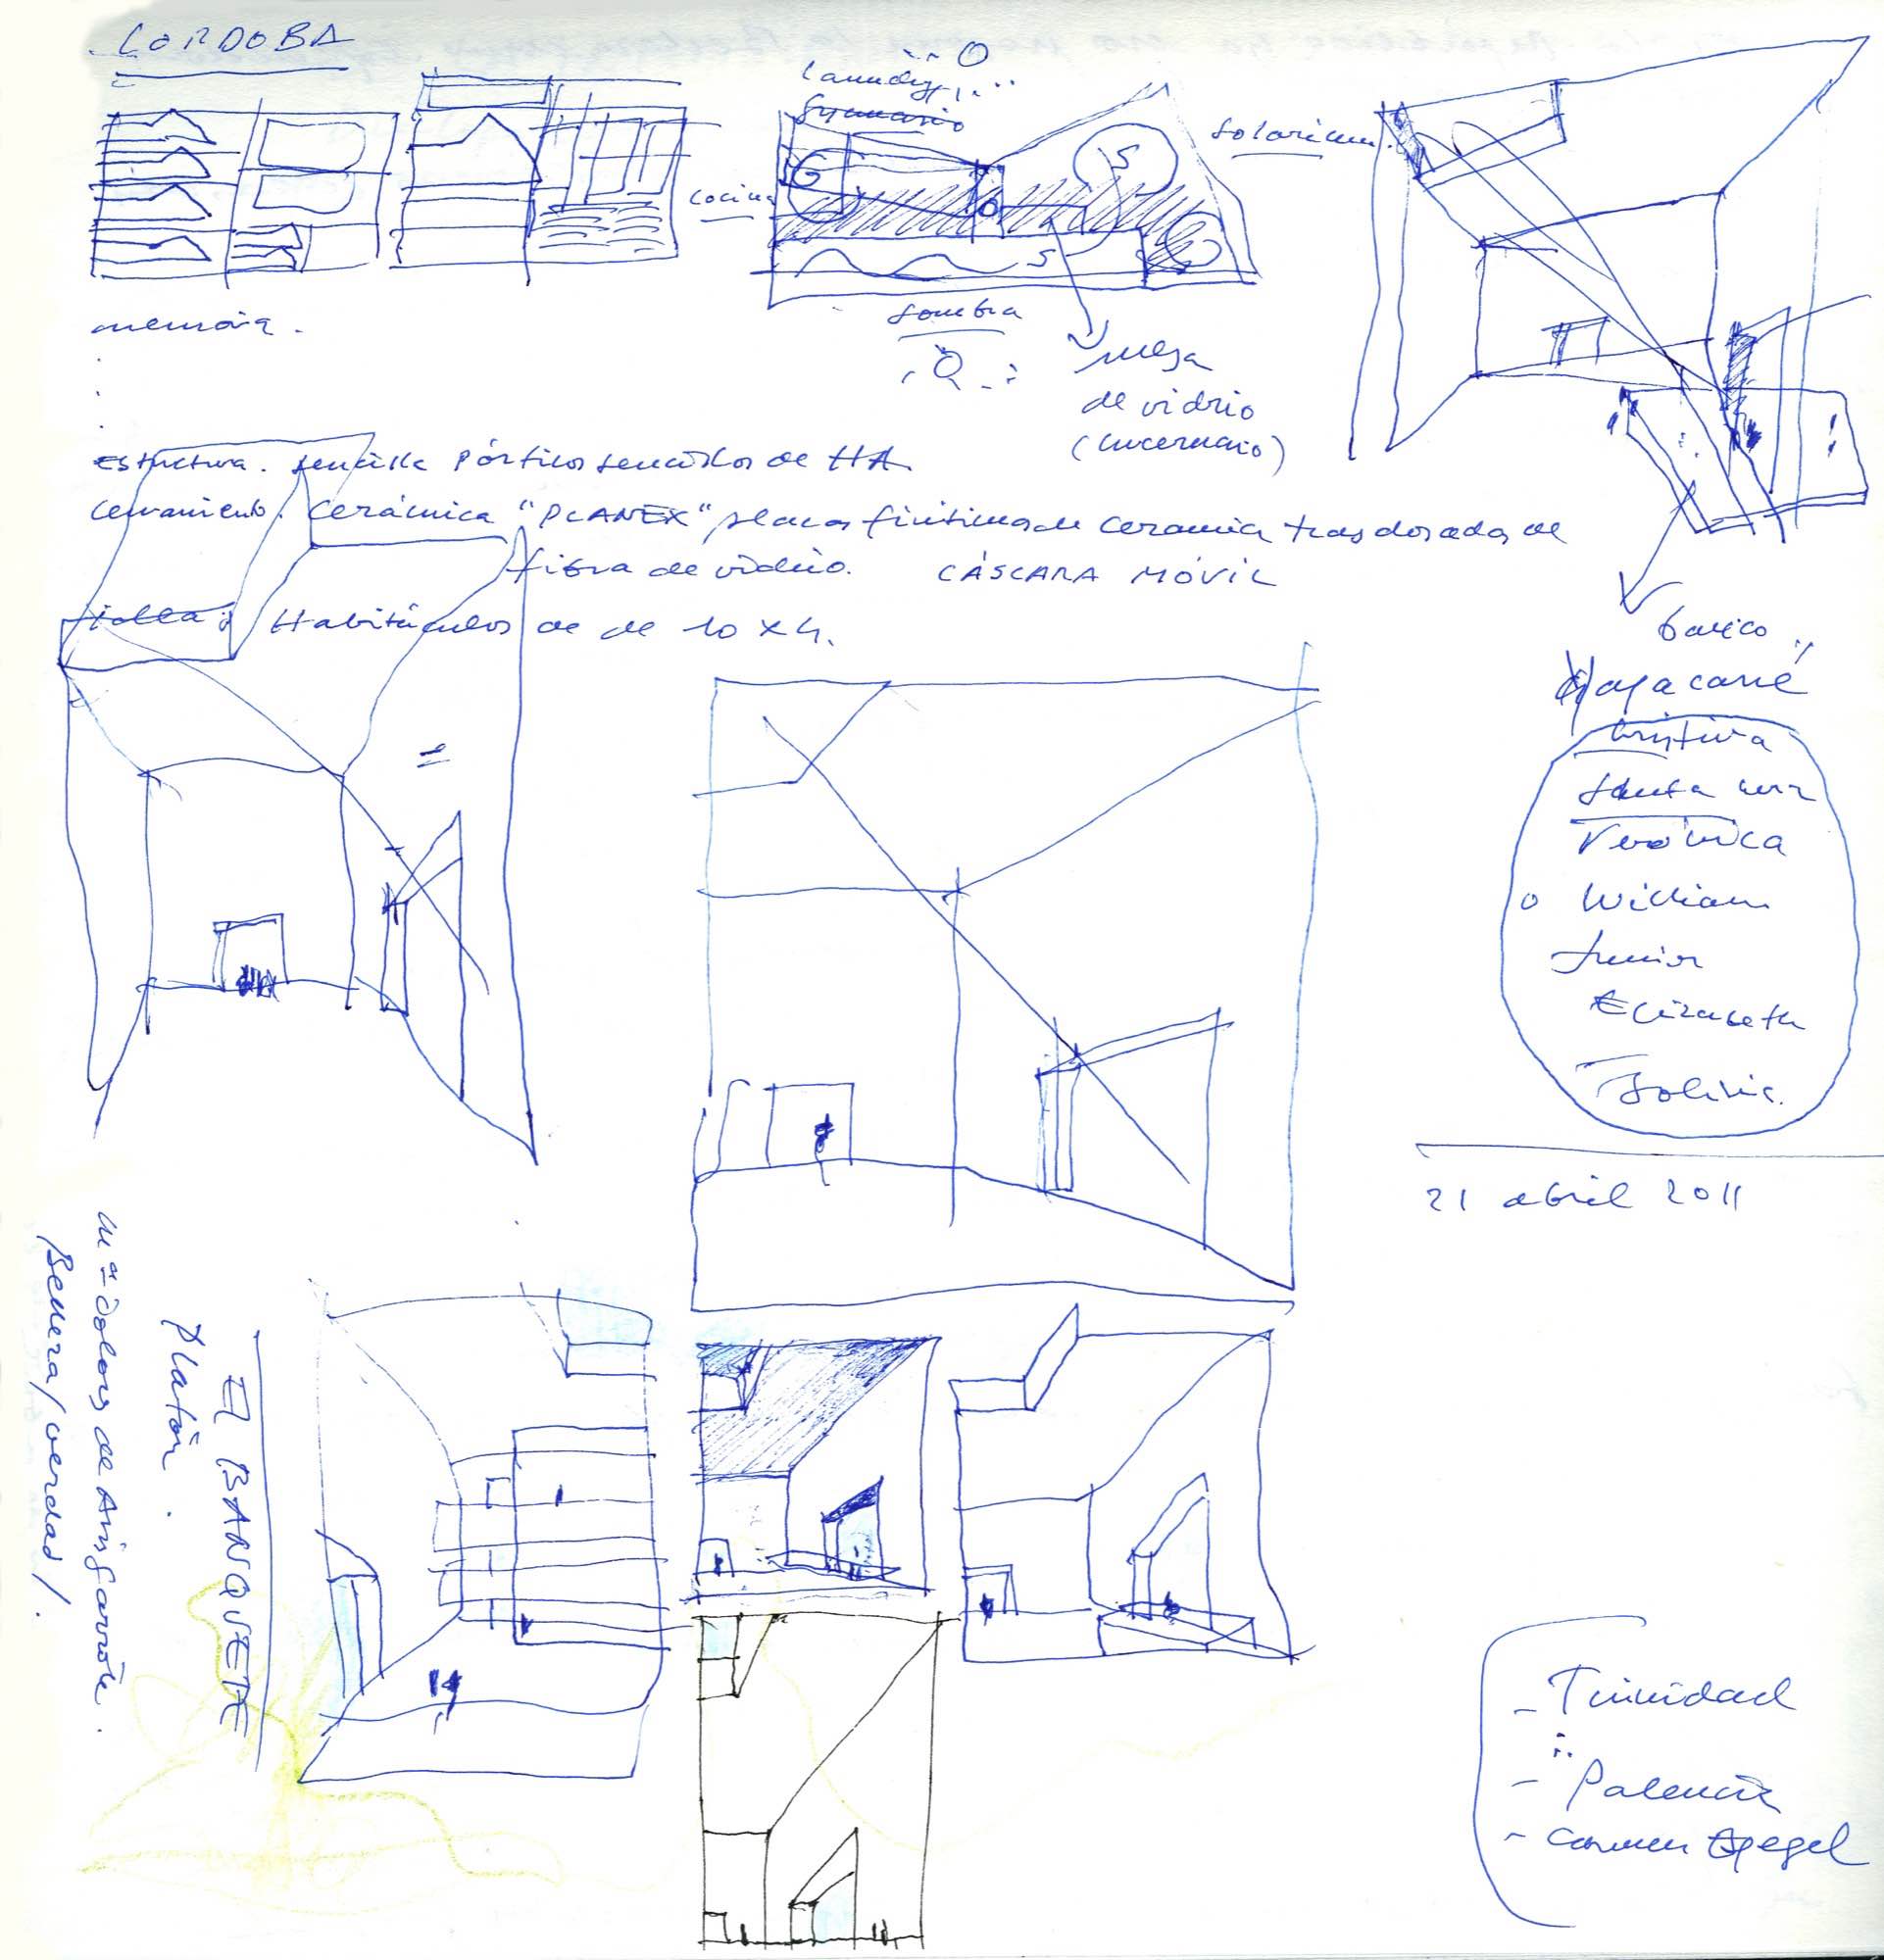 CORDOBA
laundry
Gymnasio
solarium.
cocina
G
S
S
sombra
memoria.
mesa
de vidrio
(lucernario)
Estructura. sencilla Pórticos sencillos de HA.
Cerramiento. Cerámica "PLANEX" placas finísimas de ceramica trasdosadas de
fibra de vidrio. CÁSCARA MÓVIL
Habitáculos de de 10 x 4.
banco
Yapacaní
Cristina
Santa Cruz
Verónica
William
Junior
Elizabeth
21 abril 2011
EL BANQUETE
Platón.
Mª Dolores de
/verdad/.
- Trinidad
- Palencia
- Carmen Espegel